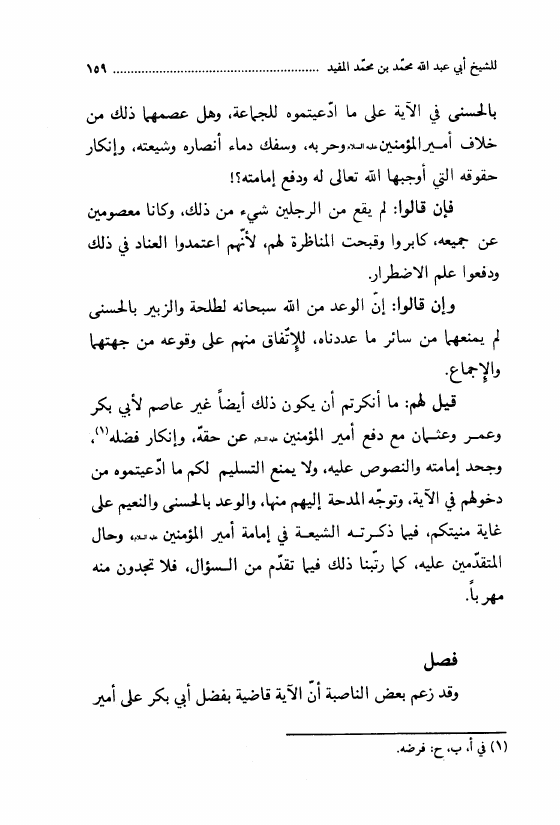 للشيخ أبي عبد الله محمّد بن محمّد المفيد ........................................................ ١٥٩
بالحسنى في الآية على ما ادّعيتموه للجماعة، وهل عصمهما ذلك من
خلاف أمير المؤمنين عليه السلام وحربه، وسفك دماء أنصاره وشيعته، وإنكار
حقوقه التي أوجبها الله تعالى له ودفع إمامته؟!
فإن قالوا: لم يقع من الرجلين شيء من ذلك، وكانا معصومين
عن جميعه، كابروا وقبحت المناظرة لهم، لأنّهم اعتمدوا العناد في ذلك
ودفعوا علم الاضطرار.
وإن قالوا: إنّ الوعد من الله سبحانه لطلحة والزبير بالحسنى
لم يمنعهما من سائر ما عددناه، للإتّفاق منهم على وقوعه من جهتهما
والإجماع.
قيل لهم: ما أنكرتم أن يكون ذلك أيضاً غير عاصم لأبي بكر
وعمر وعثمان مع دفع أمير المؤمنين عليه السلام عن حقّه، وإنكار فضله(١)،
وجحد إمامته والنصوص عليه، ولا يمنع التسليم لكم ما ادّعيتموه من
دخولهم في الآية، وتوجّه المدحة إليهم منها، والوعد بالحسنى والنعيم على
غاية منيتكم، فيما ذكرته الشيعة في إمامة أمير المؤمنين عليه السلام، وحال
المتقدّمين عليه، كما رتّبنا ذلك فيما تقدّم من السؤال، فلا تجدون منه
مهرباً.
فصل
وقد زعم بعض الناصبة أنّ الآية قاضية بفضل أبي بكر على أمير
(١) في أ، ب، ح: فرضه.